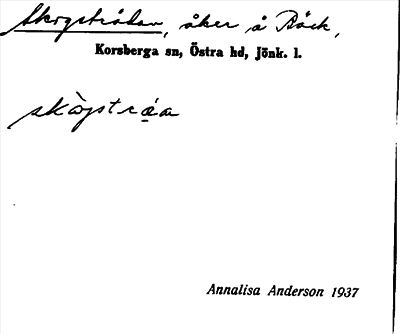 Skogstrådan, åker å Bäck,
Korsberga sn, Östra hd, Jönk. l.
skògstrạ́a
Annalisa Anderson 1937